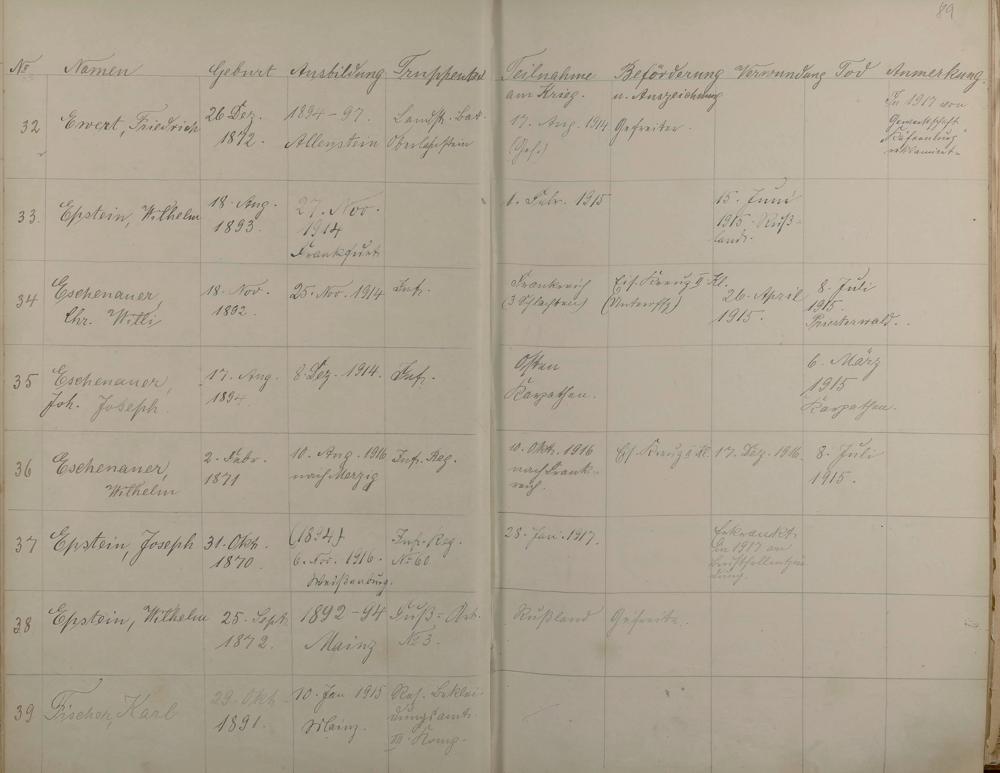 89
No Namen Geburt Ausbildung Truppenteil Teilnahme am Krieg. Beförderung u. Auszeichnung Verwundung Tod Anmerkung.
32 Ewert, Friedrich 26 Dez. 1872. 1894-97. Allenstein Landst. Bat. Oberlahnstein 17. Aug. 1914 Gefreiter. In 1917 von Gewerkschaft reklamiert.
33. Epstein, Wilhelm 18. Aug. 1893. 27. Nov. 1914 Frankfurt 1. Febr. 1915 15. Juni 1915. Rußland.
34 Eschenauer, Chr. Willi 18. Nov. 1892. 25. Nov. 1914 Inf. Frankreich (3 Schlachten) Eis. Kreuz II Kl. (Unteroffz) 26. April 1915. 8. Juli 1915. Priesterwald.
35 Eschenauer, Joh. Joseph 17. Aug. 1894. 8. Dez. 1914. Inf. Osten Karpathen. 6. März 1915 Karpathen.
36 Eschenauer, Wilhelm 2. Febr. 1871 10. Aug. 1916 nach Merzig Inf. Reg. 10. Okt. 1916 nach Frankreich. Eis. Kreuz II Kl. 17. Dez. 1916. 8. Juli 1915.
37 Epstein, Joseph 31. Okt. 1870. (1894) 6. Nov. 1916. Weißenburg. Inf. Reg. No 60 28. Jan. 1917. Erkrankt. In 1917 an Brustfellentzündung.
38 Epstein, Wilhelm 25. Sept. 1872. 1892-94 Mainz Fuß-Art. No 3. Rußland Gefreite.
39 Fischer, Karl 29. Okt. 1891. 10. Jan 1915 Mainz. Res. Bekleidungsamt. III. Komp.